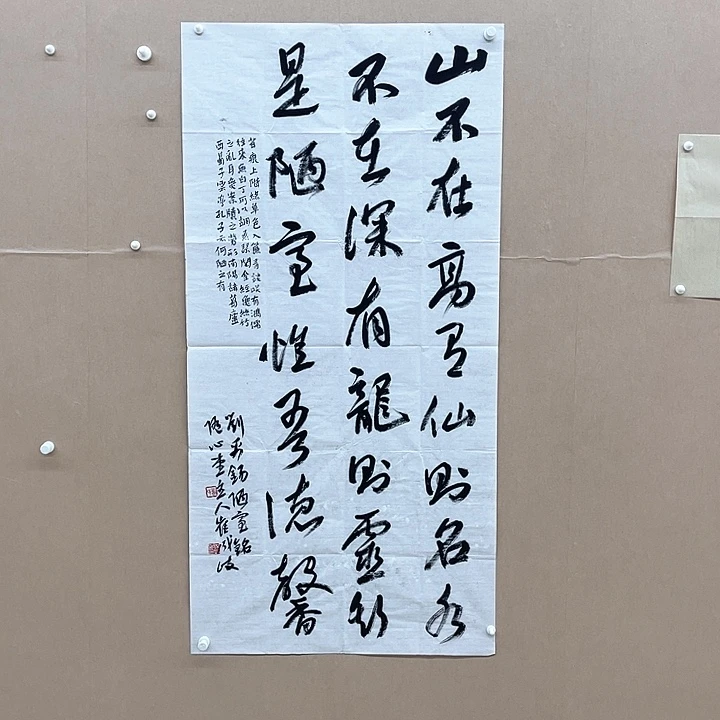 山不在高有仙則名水
不在深有龍則靈斯
是陋室惟吾德馨
苔痕上階綠草色入簾青談笑有鴻儒
往來無白丁可以調素琴閱金經無絲竹
之亂耳無案牘之勞形南陽諸葛廬
西蜀子雲亭孔子云何陋之有
劉禹錫陋室銘
隨心主人崔